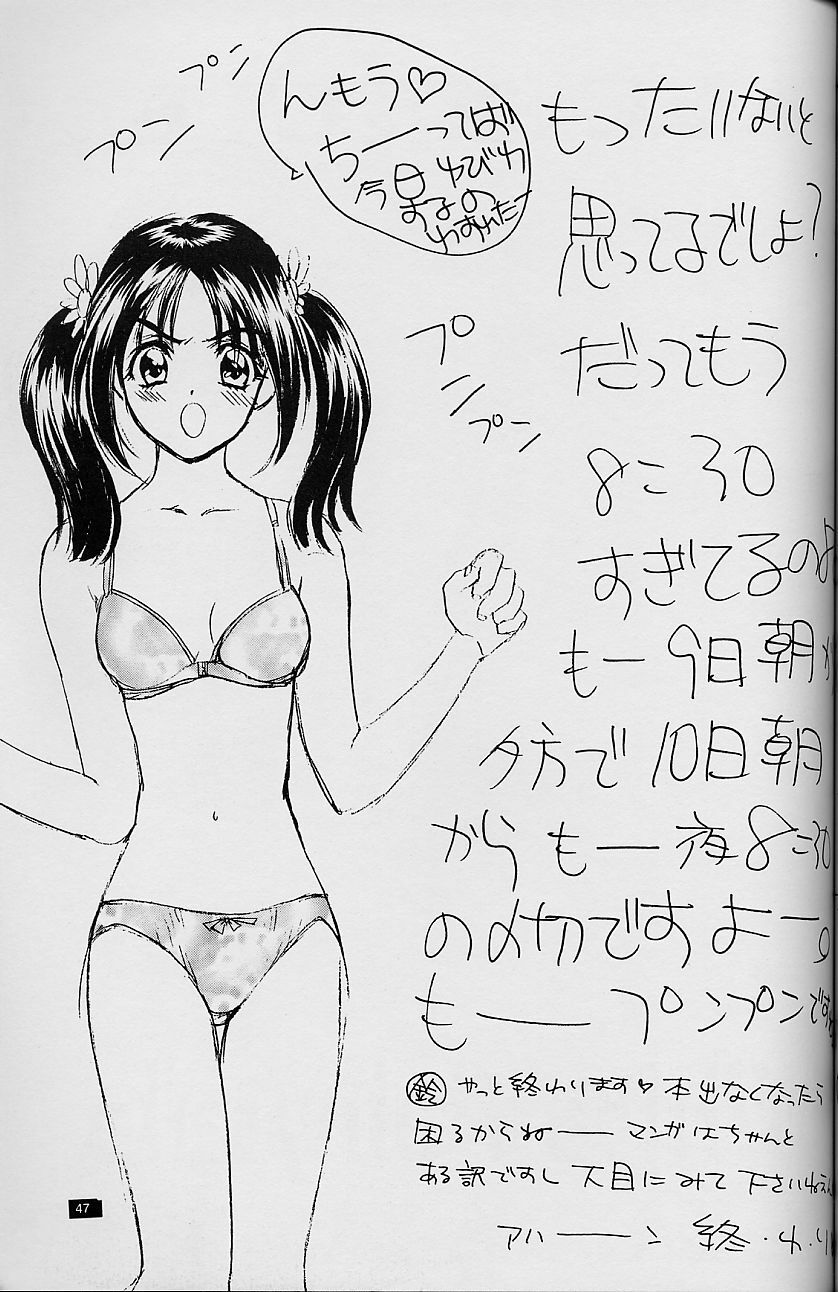 プン
プン
んもう♡
ちーってば
今日ゆびわ
するの
わすれたー
プン
プン
もったいないと
思ってるでしょ?
だってもう
8:30
すぎてるのよ
もー9日朝か
夕方で10日朝
からもー夜8:30
の〆切ですよー。
もープンプンです
鈴 やっと終わります♡ 本出なくなったら
困るからねー マンガはちゃんと
ある訳ですし 大目にみて下さいねえ
アハーン 終・わ・り
47